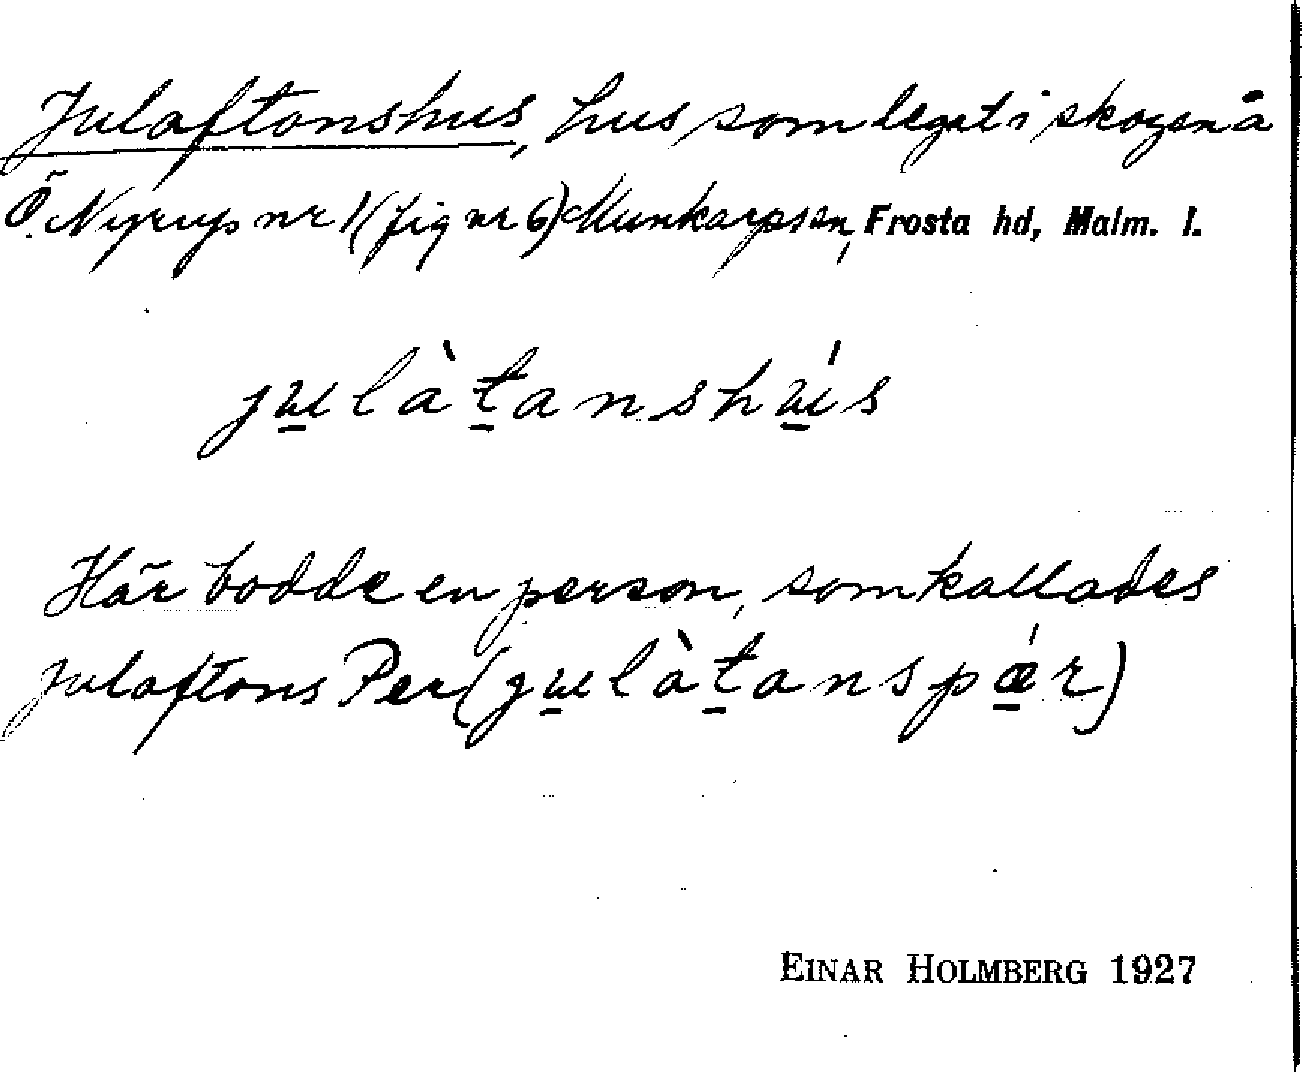 Julaftonshus, hus som legat i skogen å
Ö. Nyrup nr 1 (fig nr 6) Munkarps sn, Frosta hd, Malm. l.
ju̲là t̲anshú̲s
Här bodde en person, som kallades
Julaftons Per (ju̲làt̲anspǽ̲r)
EINAR HOLMBERG 1927